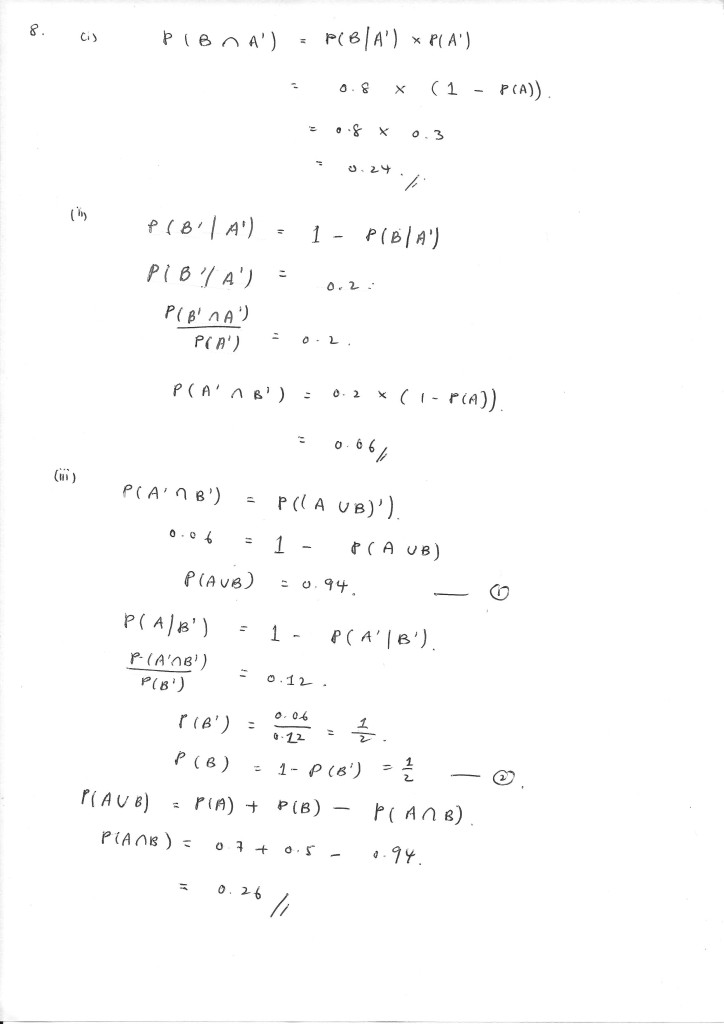 8. (i) P(B ∩ A') = P(B|A') × P(A')
= 0.8 × (1 - P(A)).
= 0.8 × 0.3
= 0.24.//
(ii) P(B'|A') = 1 - P(B|A')
P(B'|A') = 0.2.
P(B'∩A')
P(A') = 0.2.
P(A'∩B') = 0.2 × (1 - P(A)).
= 0.06//
(iii) P(A'∩B') = P((A∪B)').
0.06 = 1 - P(A∪B)
P(A∪B) = 0.94. — ①
P(A|B') = 1 - P(A'|B').
P(A'∩B')
P(B') = 0.12.
P(B') = 0.06/0.12 = 1/2.
P(B) = 1 - P(B') = 1/2 — ②.
P(A∪B) = P(A) + P(B) - P(A∩B).
P(A∩B) = 0.7 + 0.5 - 0.94.
= 0.26//